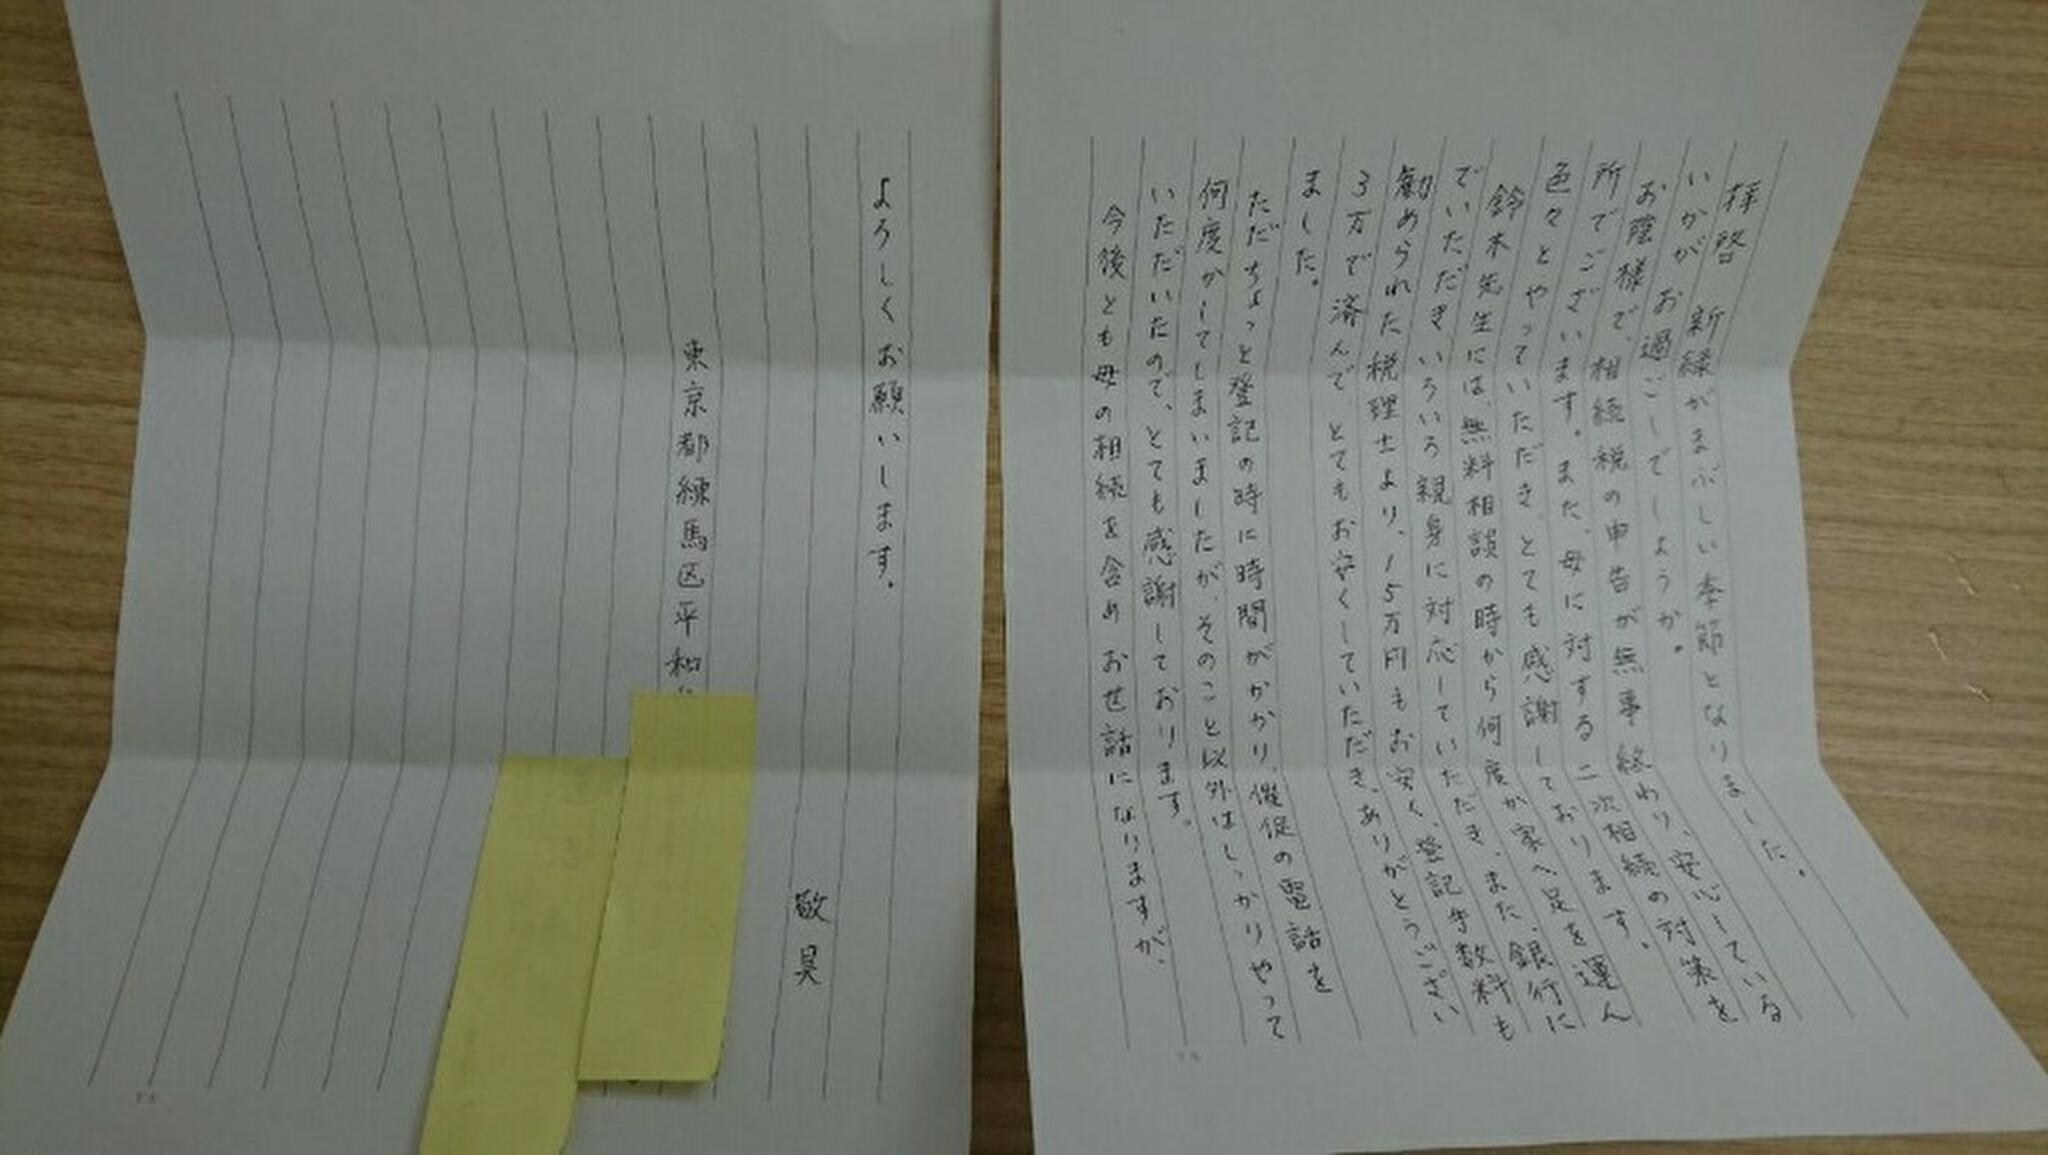 拝啓 新緑がまぶしい季節となりました。
いかがお過ごしでしょうか。
お蔭様で、相続税の申告が無事終わり、安心している
所でございます。また、母に対する二次相続の対策を
色々とやっていただき、とても感謝しております。
鈴木先生には、無料相談の時から何度か家へ足を運ん
でいただきいろいろ親身に対応していただき、また、銀行に
勧められた税理士より、15万円もお安く、登記手数料も
3万で済んで、とてもお安くしていただき、ありがとうござい
ました。
ただちょっと登記の時に時間がかかり、催促の電話を
何度かしてしまいましたが、そのこと以外はしっかりやって
いただいたので、とても感謝しております。
今後とも母の相続を含めお世話になりますが、
よろしくお願いします。
敬具
東京都練馬区平和